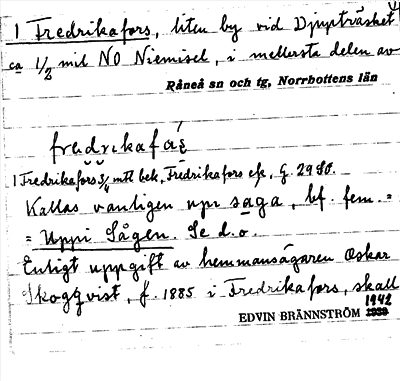 1 Fredrikafors, liten by vid Djupträsket
ca 1/2 mil NO Niemisel, i mellersta delen av
Råneå sn och tg, Norrbottens län
fredrikafo
1 Fredrikafors 3/4 mtl bek, Fredrikafors ek, G. 2980.
Kallas vanligen upi saga, bf. fem. =
= Uppi Sågen. Se d. o.
Enligt uppgift av hemmansägaren Oskar
Skogqvist, f. 1885 i Fredrikafors, skall
EDVIN BRÄNNSTRÖM 1942